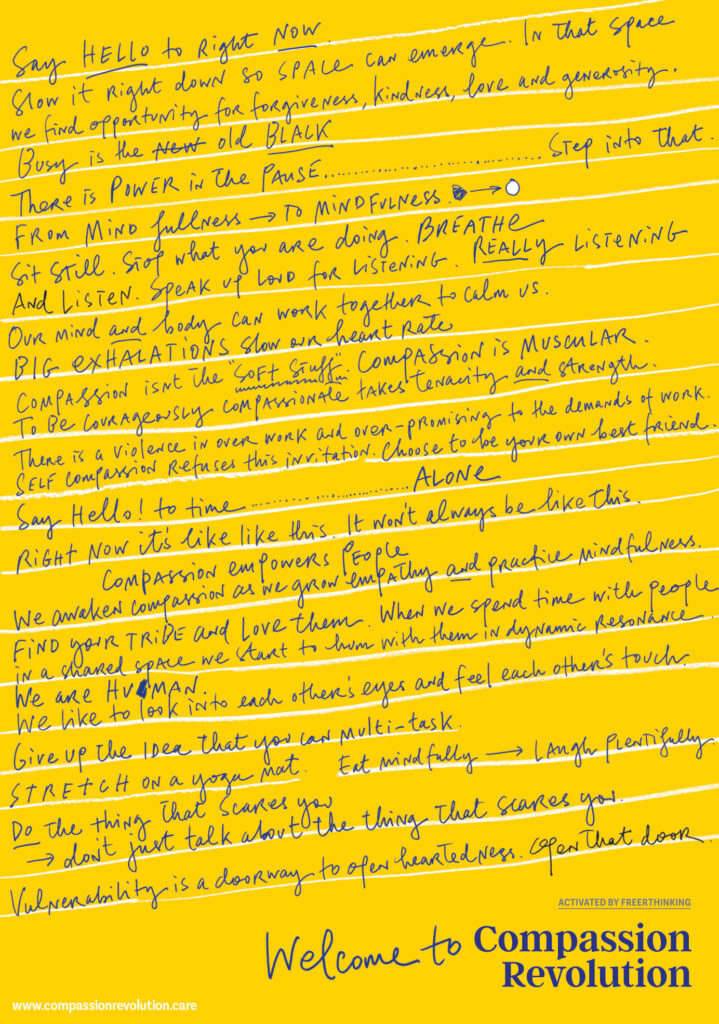 Say HELLO to Right NOW.
Slow it Right down so SPACE can emerge. In that space
we find opportunity for forgiveness, kindness, love and generosity.
Busy is the New old BLACK
There is POWER in the PAUSE............................ Step into that.
FROM MIND fullness → TO MINDFULNESS. →
Sit Still. Stop what you are doing. BREATHE
AND LISTEN. SPEAK UP LOUD FOR LISTENING. REALLY LISTENING
OUR MIND and body can work together to calm us.
BIG EXHALATIONS slow our heart Rate
COMPASSION isnt the "SOFT Stuff". COMPASSION is MUSCULAR.
To Be COURAGEOUSLY COMPASSIONATE takes tenacity and strength.
There is a violence in over work and over-promising to the demands of work.
SELF COMPASSION Refuses this invitation. Choose to be your own best friend.
Say Hello! to time ........................ ALONE
RIGHT NOW it's like like this. It won't always be like this.
COMPASSION EMPOWERS PEOPLE
We awaken compassion as we grow empathy and practice mindfulness.
FIND your TRIBE and Love them. When we spend time with people
in a shared space we start to hum with them in dynamic Resonance.
We are HUMAN.
We like to look into each other's eyes and feel each other's touch.
Give up the IDEA that you can multi-task.
STRETCH on a yoga mat. Eat mindfully → LAUGH PLENTIFULLY.
Do the thing that Scares you
→ don't just talk about the thing that scares you.
Vulnerability is a doorway to open heartedness. Open that door.
ACTIVATED BY FREERTHINKING
Welcome to Compassion
Revolution
www.compassionrevolution.care